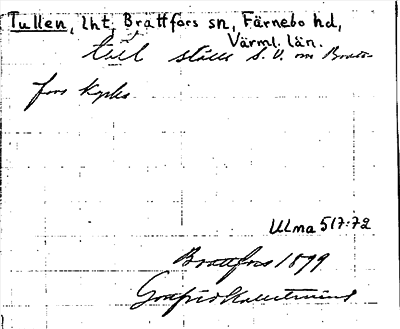 Tullen, lht, Brattfors sn, Färnebo hd,
Värml. län.
ställe S. V. om Bratt-
fors kyrka
ULMA 517:72
Brattfors 1899
Gottfrid Kallstenius